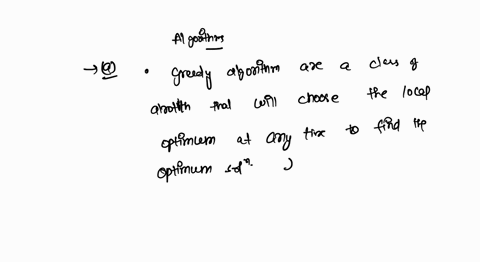 Algorithms
→ (a) • Greedy algorithm are a class of
that will choose the local
optimum at any time to find the
optimum solⁿ. )